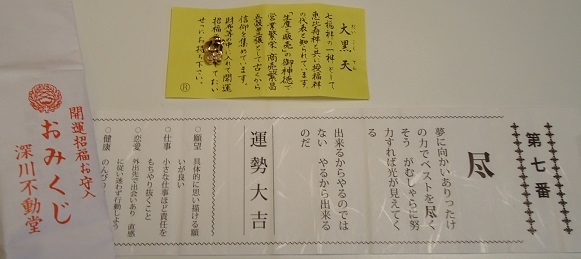 大黒天
七福神の一神として
恵比寿神と共に授福神
の代表と知られています。
「生産と販売」の御神徳で
営業繁栄 商売繁昌
五穀豊穣として古くから
信仰を集めています。
財布等の中に入れ開運
招福 してたい
せつにお持ち下さい。
Ⓡ
第七番
尽
夢に向かいありったけ
の力でベストを尽く
そう がむしゃらに努
力すれば光が見えてく
る
出来るからやるのでは
ない やるから出来る
のだ
運勢大吉
○願望 具体的に思い描ける願
いが良い
○仕事 小さな仕事ほど責任を
もちやり抜くこと
○恋愛 外出先で出会いあり 直感
に従い迷わず行動しよう
○健康
開運招福お守入
おみくじ
深川不動堂